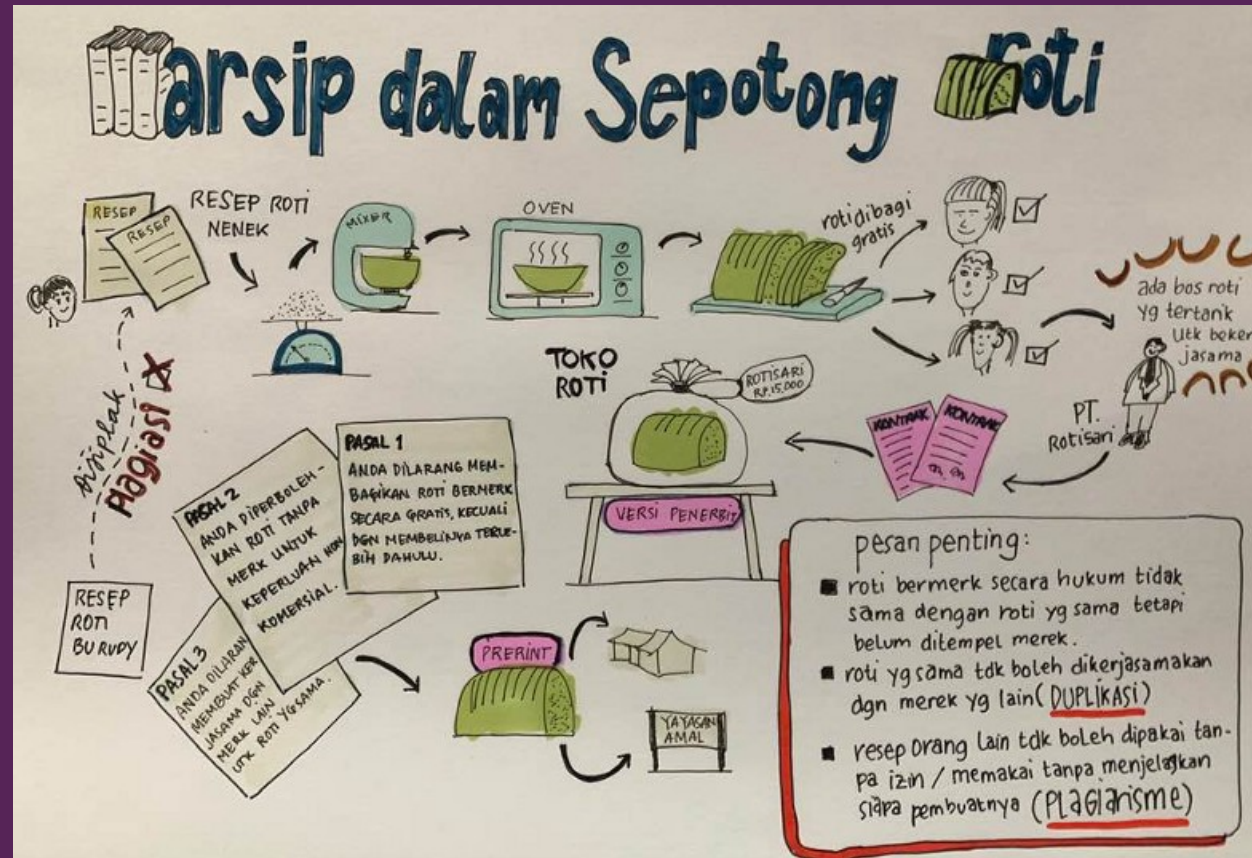 arsip dalam Sepotong roti
RESEP
RESEP
RESEP ROTI
NENEK
MIXER
OVEN
roti dibagi
gratis
ada bos roti
yg tertarik
Utk beker
jasama
PT.
Rotisari
KONTRAK
KONTRAK
TOKO
ROTI
ROTISARI
RP.15.000
VERSI PENERBIT
dijiplak
Plagiasi
RESEP
ROTI
BU RUDY
PASAL 1
ANDA DILARANG MEM-
BAGIKAN ROTI BERMERK
SECARA GRATIS, KECUALI
DGN MEMBELINYA TERLE-
BIH DAHULU.
PASAL 2
ANDA DIPERBOLEH-
KAN ROTI TANPA
MERK UNTUK
KEPERLUAN NON
KOMERSIAL.
PASAL 3
ANDA DILARAN
MEMBUAT KER
JASAMA DGN
MERK LAIN
UTK ROTI YG SAMA.
PRERINT
YAYASAN
AMAL
pesan penting:
roti bermerk secara hukum tidak
sama dengan roti yg sama tetapi
belum ditempel merek.
roti yg sama tdk boleh dikerjasamakan
dgn merek yg lain (DUPLIKASI)
resep orang lain tdk boleh dipakai tan-
pa izin / memakai tanpa menjelaskan
siapa pembuatnya (PLAGIARISME)